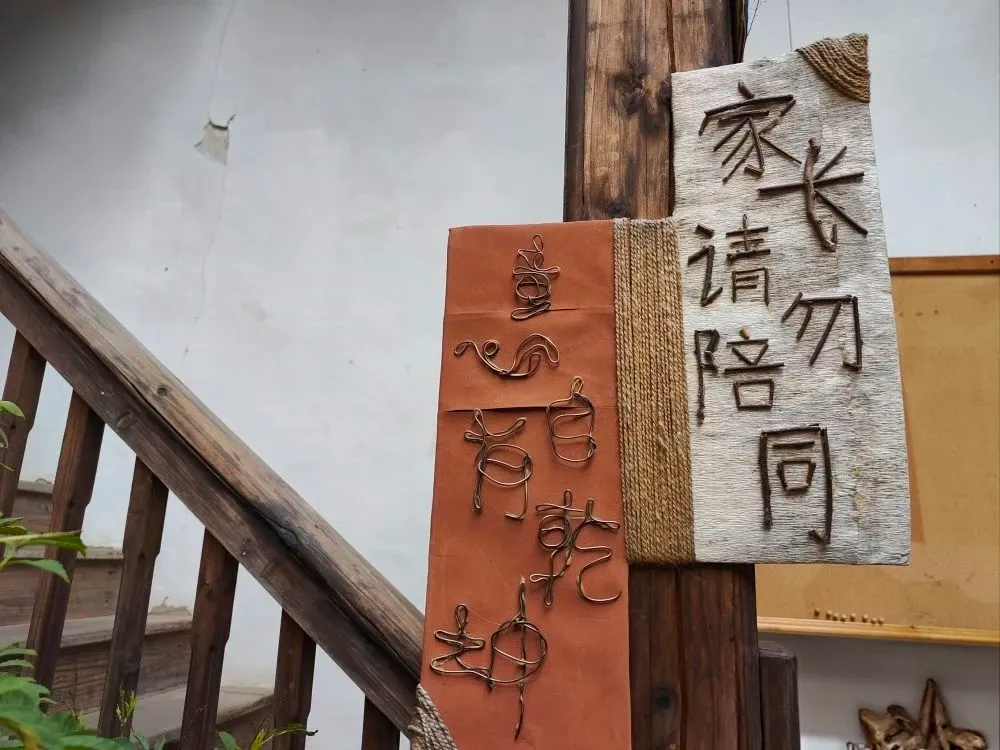 童心自有乾坤
家长请勿陪同